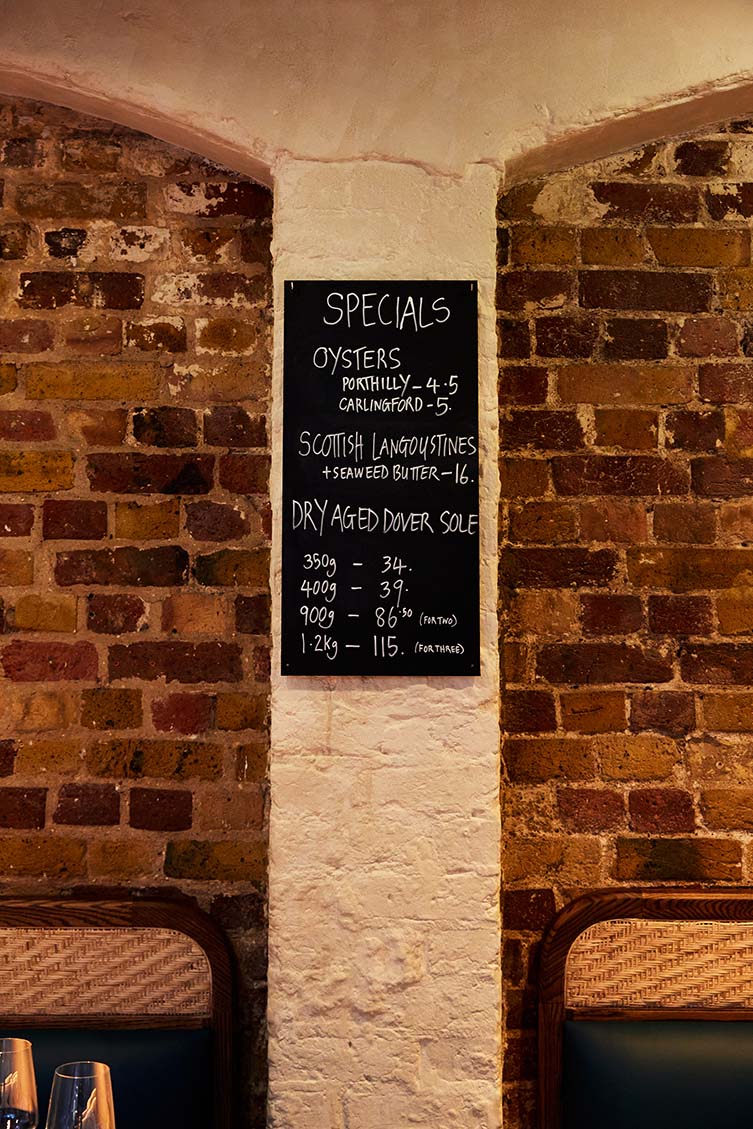 SPECIALS
OYSTERS
PORTHILLY - 4.5
CARLINGFORD - 5.
SCOTTISH LANGOUSTINES
+ SEAWEED BUTTER - 16.
DRY AGED DOVER SOLE
350g - 34.
400g - 39.
900g - 86.50 (FOR TWO)
1.2kg - 115. (FOR THREE)